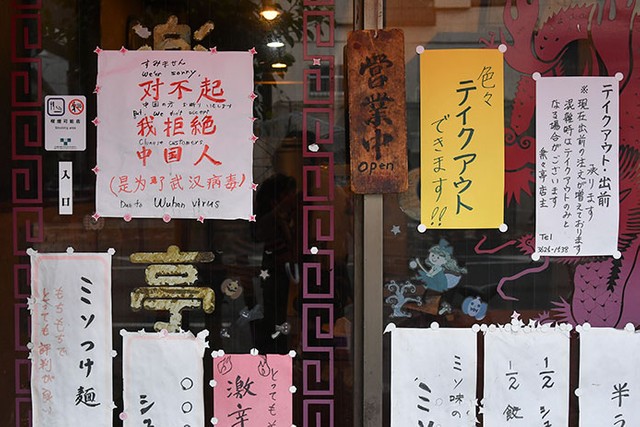 すみません
We're sorry
对不起
中国の方 お断りいたします
But, we don't accept
我拒绝
Chinese customers
中国人
(是为了武汉病毒)
Due to Wuhan virus
喫煙可能店
Smoking area
入口
営業中
Open
色々
テイクアウト
できます!!
テイクアウト・出前
承ります
※現在出前の注文が増えております
混雑時はテイクアウトのみと
なる場合がございます
店主
Tel
3626-1938
亭
ミソつけ麺
もちもちで
とても評判が良い
○○○
シュ
とても
激辛
ミソ味の
ミソ
1/2
シュ
1/2
飯
半ラ